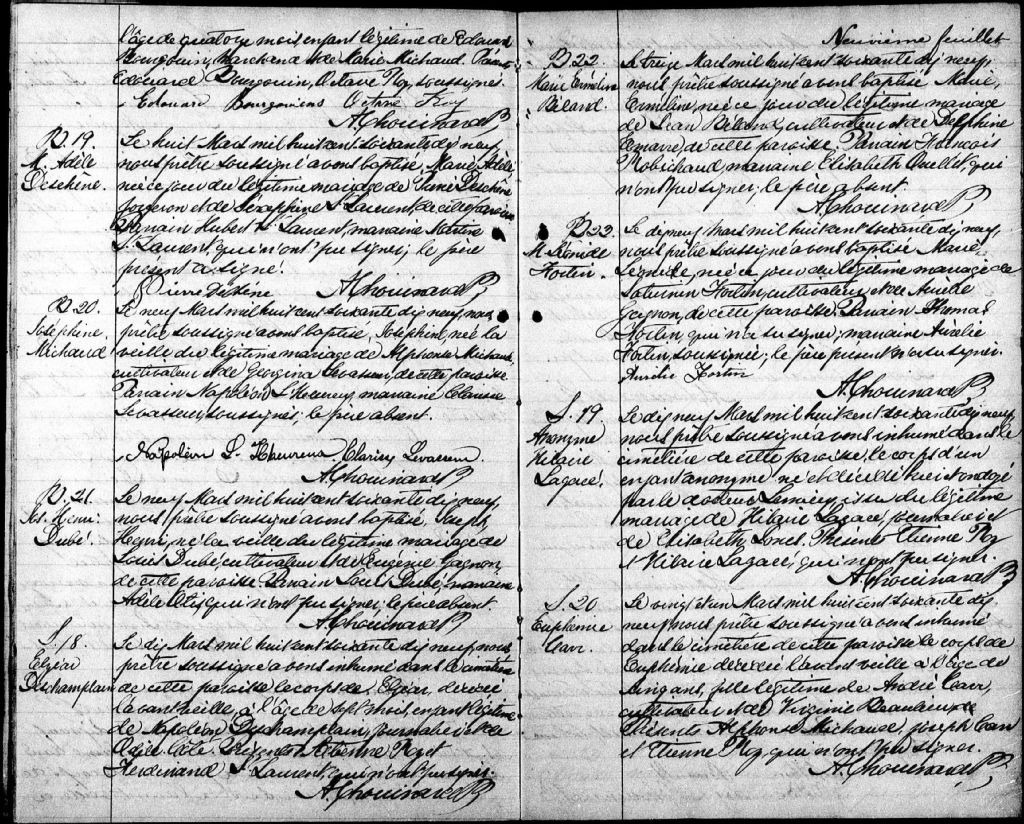 l'âge de quatorze mois, enfant légitime de Edouard
Bourgouin, Marchand et de Marie Michaud. Présents
Edouard Bourgouin, Octave Roy, soussignés.
Edouard Bourgouin Octave Roy
A. Chouinard Ptre
B. 19.
M. Adèle
Deschêne.
Le huit Mars mil huit cent soixante dix neuf,
nous prêtre soussigné avons baptisé Marie Adèle,
née ce jour du légitime mariage de Deschêne
forgeron et de Séraphine St Laurent, de cette paroisse
Parrain Hubert St Laurent, marraine
St Laurent, qui n'ont pu signer; le père
présent a signé.
Pierre A. Chouinard Ptre
B. 20.
Joséphine
Michaud
Le neuf Mars mil huit cent soixante dix neuf, nous
prêtre soussigné avons baptisé, Joséphine, née la
veille du légitime mariage de Alphonse Michaud
cultivateur et de Georgina Levasseur, de cette paroisse
Parrain Napoléon L'Heureux, marraine Clarisse
Levasseur, soussignés; le père absent.
Napoléon L'Heureux Clarisse Levasseur
A. Chouinard Ptre
B. 21.
Jos. Henri
Dubé.
Le neuf Mars mil huit cent soixante dix neuf,
nous prêtre soussigné avons baptisé, Joseph
Henri, né la veille du légitime mariage de
Louis Dubé, cultivateur et de Eugénie Gagnon,
de cette paroisse Parrain Dubé, marraine
Adèle qui n'ont pu signer; le père absent.
A. Chouinard Ptre
S. 18
Elzéar
Deschamplain
Le dix Mars mil huit cent soixante dix neuf, nous
prêtre soussigné avons inhumé dans le cimetière
de cette paroisse le corps de, Elzéar, décédé
l'avant veille, à l'âge de sept mois, enfant légitime
de Napoléon Deschamplain, journalier et de
Présents Etienne Roy et
Ferdinand St Laurent, qui n'ont pu signer.
A. Chouinard Ptre
Neuvième feuillet
B. 22.
Marie Erméline
Béland.
Le treize Mars mil huit cent soixante dix neuf,
nous prêtre soussigné avons baptisé Marie,
Erméline, née ce jour du légitime mariage
de Jean Béland, cultivateur et de Delphine
Lemarre de cette paroisse. Parrain François
Robichaud, marraine Elisabeth Ouellet, qui
n'ont pu signer, le père absent.
A. Chouinard Ptre
B. 23.
M.
Fortin.
Le dix neuf Mars mil huit cent soixante dix neuf,
nous prêtre soussigné avons baptisé Marie,
née ce jour du légitime mariage de
Saturnin Fortin, cultivateur et de Aurélie
Gagnon, de cette paroisse. Parrain Thomas
Fortin, qui n'a su signer, marraine Aurélie
Fortin, soussignée; le père présent n'a su signer.
Aurélie Fortin
A. Chouinard Ptre
S. 19
Anonyme
Hilaire
Lagacé.
Le dix neuf Mars mil huit cent soixante dix neuf,
nous prêtre soussigné avons inhumé dans le
cimétière de cette paroisse, le corps d'un
enfant anonyme né et décédé hier et ondoyé
par le docteur issu du légitime
mariage de Hilaire Lagacé, journalier et
de Elisabeth Présents Etienne Roy
et Hilaire Lagacé, qui n'ont pu signer.
A. Chouinard Ptre
S. 20
Euphémie
Le vingt et un Mars mil huit cent soixante dix
neuf, nous prêtre soussigné avons inhumé
dans le cimetière de cette paroisse le corps de
Euphémie décédée l'avant veille à l'âge de
cinq ans, fille légitime de André
cultivateur et de Virginie Beaulieu
Présents Alphonse Michaud, Joseph
et Etienne Roy, qui n'ont pu signer.
A. Chouinard Ptre